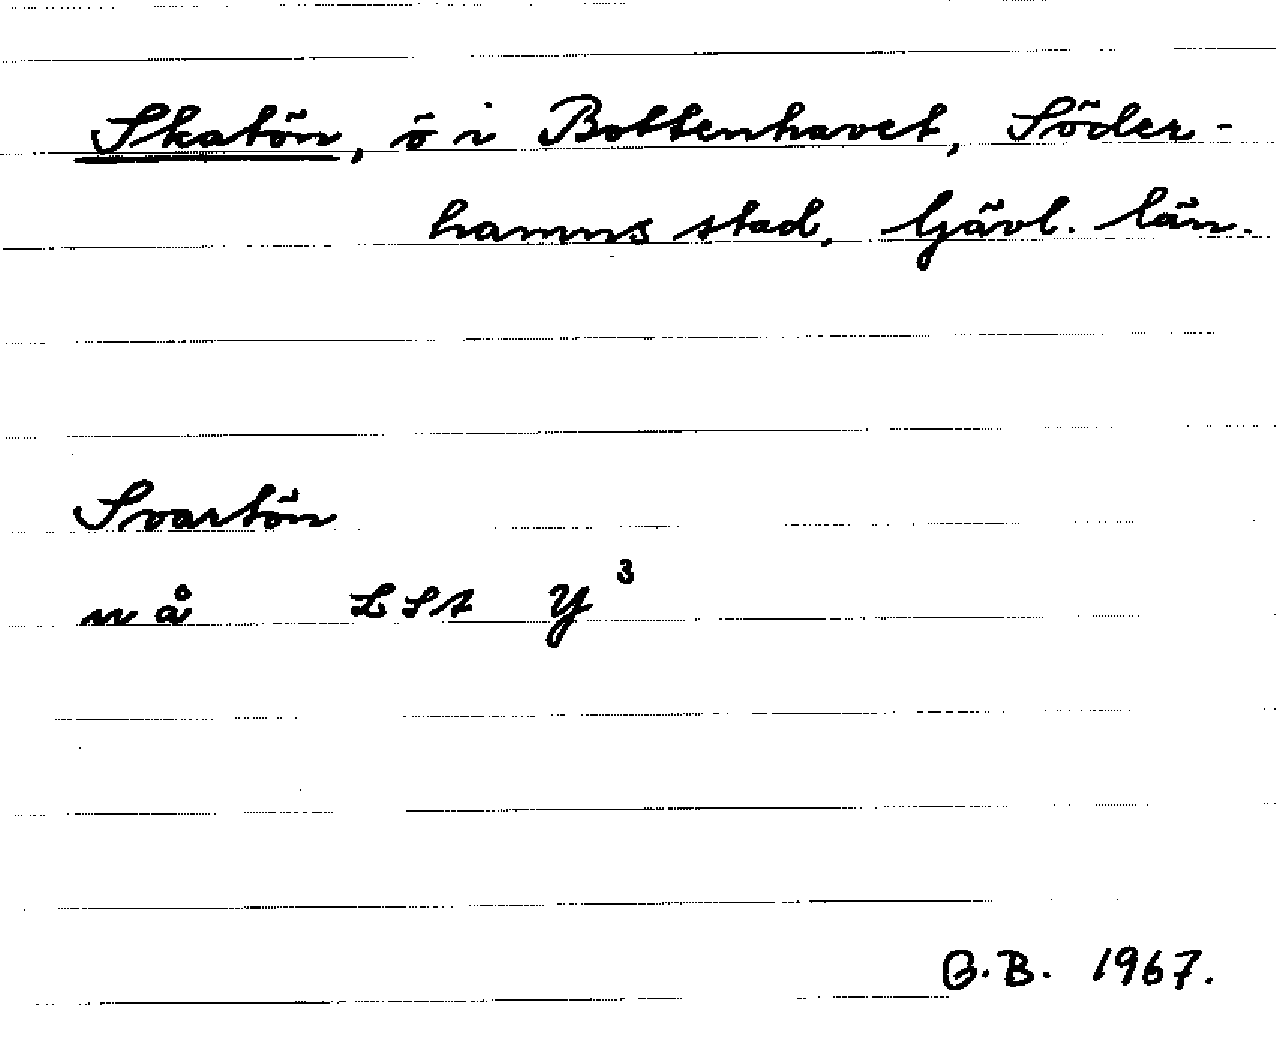 Skatön, ö i Bottenhavet, Söder-
hamns stad, Gävl. län.
Svartön
nå LSt Y³
B.B. 1967.